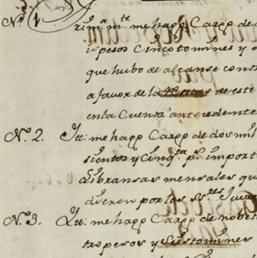 N.º 1. me hago Cargo de
pesos Cinco tomines y
que hubo de alcanse contra
a favor de la de este
en la Cuenta antecedente
N.º 2. Yt. me hago Cargo de dos mil
sientos y Cinq.ta p.s importe
Libransas mensales que
dieron por los S.res
N.º 3. Yt. me hago Cargo de nobe
ta pesos y Seis tomines